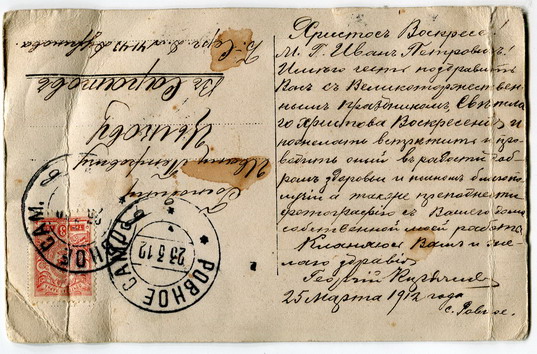 Христосъ Воскресе!
М. Г. Иванъ Петровичъ!
Имѣю честь поздравить
Васъ съ Великоторжествен
нымъ Праздникомъ Свѣтла
го Христова Воскресенія и
пожелать встрѣтить и про
водить оный въ радости доб
ромъ здоровьи и полномъ благопо
лучіи а также преподнести
фотографію съ Вашего дома
собственной моей работы
Кланяюсь Вамъ и же
лаю здравія
Георгій
25 Марта 1912 года
с. Ровное.
Господину
Ивану Петровичу
Въ Саратовъ
РОВНОЕ САМ.
26 3 12
РОВНОЕ САМ.